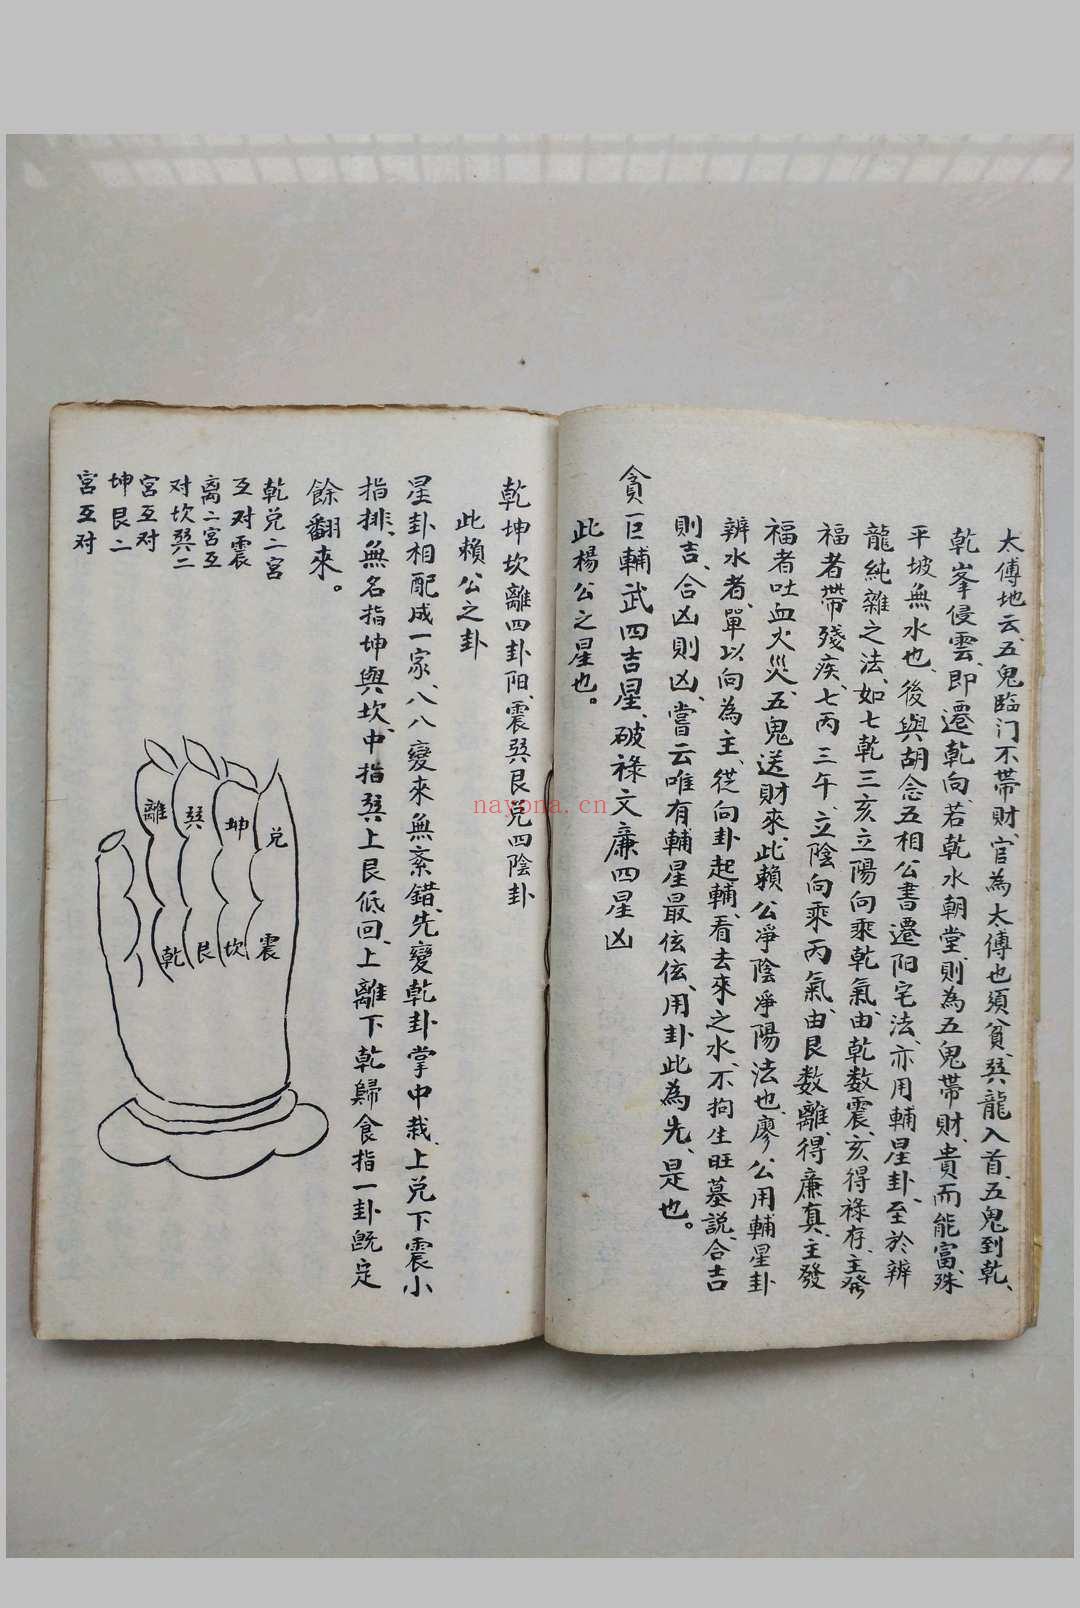 太傅地云、五鬼臨门不带財、官為太傅也須貧、巽龍入首、五鬼到乾、
乾峯侵雲、即遷乾向、若乾水朝堂、則為五鬼帶財、貴而能富、殊
平坡無水也、後與胡念五相公書遷阳宅法、亦用輔星卦、至於辨
龍純雜之法、如七乾三亥立陽向乘乾氣、由乾数震、亥得祿存、主發
福者帶殘疾、七丙三午、立陰向乘丙氣、由艮数離、得廉真、主發
福者吐血火災、五鬼送財來、此賴公凈陰凈陽法也、廖公用輔星卦
辨水者、單以向為主、從向卦起輔、看去來之水、不拘生旺墓説、合吉
則吉、合凶則凶、嘗云唯有輔星最伭伭、用卦此為先、是也。
貪巨輔武四吉星、破祿文廉四星凶
此楊公之星也。
乾坤坎離四卦阳、震巽艮兑四陰卦
此賴公之卦
星卦相配成一家、八八變來無紊錯、先變乾卦掌中栽、上兑下震小
指排、無名指坤與坎、中指巽上艮低回、上離下乾歸食指一卦旣定
餘翻來。
乾兑二宮
互对震
离二宮互
对坎巽二
宮互对
坤艮二
宮互对
離 巽 坤 兑
乾 艮 坎 震
nayona.cn